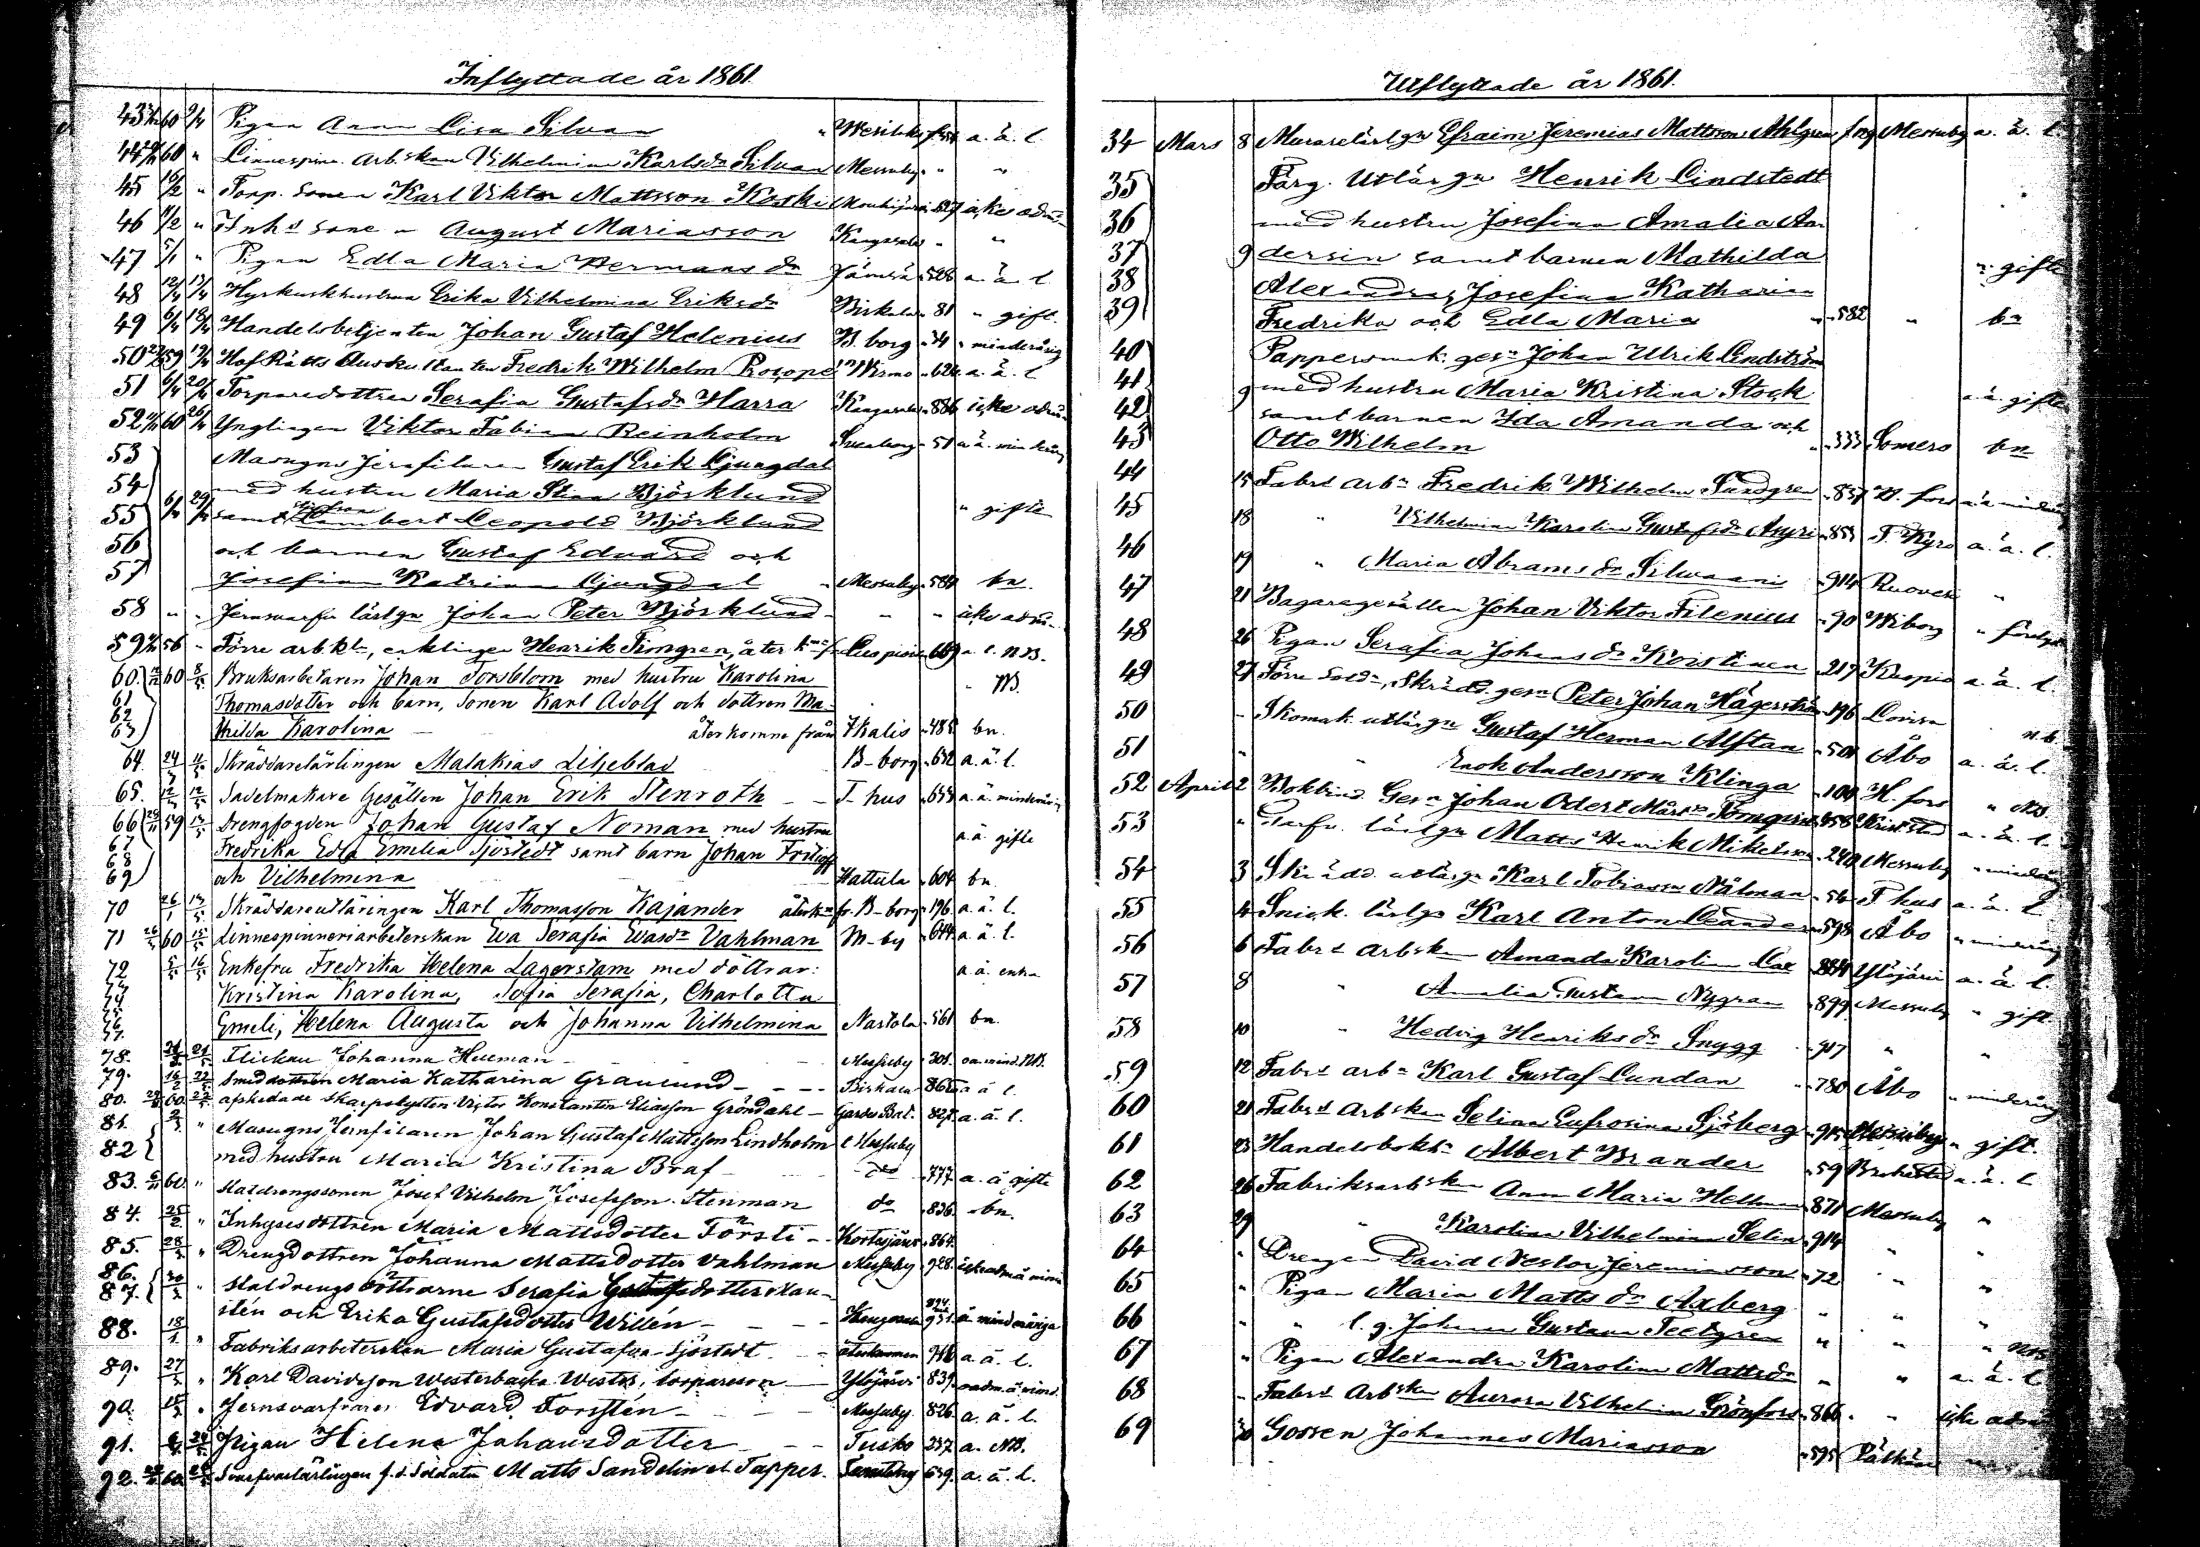 Inflyttade år 1861.
43 60 9/4 Pigan Anna Lisa Silvan Wesilaks a. ä. l.
44 60 " Linnespinn. arb.skan Vilhelmina Karlsdr Silvan Messuby " "
45 16/2 " Torp. sonen Karl Viktor Mattsson Koski 527 icke adm.
46 11/2 " Inhs sone n August Mariasson Kangasala " "
47 5/1 " Pigan Edla Maria Hermans dr Jämsä 528 a. ä. l.
48 12/4 17/4 Hyrkuskhustrun Erika Vilhelmina Eriksdr Birkala 81 " gift.
49 6/4 18/4 Handelsbetjenten Johan Gustaf Helenius B.borg 74 " minderårig
50 59 19/4 HofRätts Auskultanten Fredrik Wilhelm Procopé Wirmo 624 a. ä. l
51 6/4 20/4 Torparedottren Serafia Gustafsdr Harra Kangasala 886 icke adm.
52 60 26/4 Ynglingen Viktor Fabian Reinholm Sveaborg 51 a. ä. minderårig
53 Masugns Jernfilaren Gustaf Erik Ljungdal
54 med hustru Maria Stina Björklund " gifte
55 6/4 29/4 samt Lambert Leopold Björklund
56 och barnen Gustaf Edvard och
57 Josefina Katrina Ljungdal Messuby 580 bn.
58 " " Jernsvarfvr lärlgn Johan Peter Björklund " " icke adm.
59 56 " Förre arb.kl., enklingen Henrik Timgren, åter k. fr 669 a. l. NB.
60. 60 8/5 Bruksarbetaren Johan Forsblom med hustru Karolina " NB.
61 Thomasdotter och barn, Sonen Karl Adolf och dottren Ma-
62
63 thilda Karolina återkomne från Ikalis 485 bn.
64. 24/ 11/5 Skräddarelärlingen Malakias Liljeblad B-borg 632 a. ä. l.
65. 12/ 12/5 Sadelmakare Gesällen Johan Erik Stenroth T-hus 653 a. ä. minderårig
66 59 13/5 Drengfogden Johan Gustaf Noman med hustru a. ä. gifte
67 Fredrika Edla Emelia Sjöstedt samt barn Johan Fritioff
68
69 och Vilhelmina Hattula 604 bn.
70 26/1 14/5 Skräddareutläringen Karl Thomasson Kajander återkn fr. B-borg 196 a. ä. l.
71 60 15/5 Linnespinneriarbeterskan Eva Serafia Evasdr Vahlman M-by 644 a. ä. l.
72 5/5 16/5 Enkefru Fredrika Helena Lagerstam med döttrar: a. ä. enka
73 Kristina Karolina, Sofia Serafia, Charlotta
74
75
76 Emeli, Helena Augusta och Johanna Vilhelmina Nastola 561 bn.
77
78. 21/5 Flickan Johanna Hueman Messuby 301. oa. mind. NB.
79. 16/2 22/5 Smeddottren Maria Katharina Granlund Birkala 865 a ä l.
80. 60 22/5 afskedade Skarpskytten Victor Konstantin Eliasson Gröndahl Gardes Bat. 827. a. ä. l.
81. " Masugns Jernfilaren Johan Gustaf Mattsson Lindholm Messuby
82 med hustru Maria Kristina Braf do 777 a. ä. gifte
83. 60 " Stadsdrengssonen Josef Vilhelm Josefsson Stenman do 836. bn.
84. 25/2 " Inhysesdottren Maria Mattsdotter Försti Kortesjärvi 864.
85. 28/ " Drengdottren Johanna Mattsdotter Vahlman Messuby 928. icke adm ä mind
86.
87. 30/ " Stadsdrengs döttrarne Serafia Gustafsdotter
och Erika Gustafsdotter Willén Kangasala 931. ä minderåriga
88. 18/1 " Fabriksarbeterskan Maria Gustafva Sjöstedt återkommen 766 a. ä. l.
89. 27/ " Karl Davidsson Westerbacka Wistis, torpareson Ylöjärvi 839. oadm. ä mind.
90. " Jernsvarfvaren Edvard Forsstén Messuby 826 a. ä. l.
91. Pigan Helena Johansdotter Tusko 237 a. NB.
92. 60 Svarfvarelärlingen f.d. Soldaten Matts Sandelin el. Tapper. 639. a. ä. l.
Utflyttade år 1861.
34 Mars 8 Murarelärlgn Efraim Jeremias Mattsson Ahlgren Messuby a. ä. l.
35 Färg. Utlärgn Henrik Lindstedt
36 med hustru Josefina Amalia An-
37 9 dersin samt barnen Mathilda " gifte
38 Alexandra, Josefina Katharina
39 Fredrika och Edla Maria 582 " bn
40 Pappersmak. gesn Johan Ulrik Lindström
41 9 med hustru Maria Kristina Stock a. ä. gifte
42 samt barnen Ida Amanda och
43 Otto Wilhelm 333 Somero bn
44 15 Fabrs arbn Fredrik Wilhelm Sundgren 837 H. fors a. ä. minderårig
45 18 " Vilhelmina Karolina Gustafsdr Asyri 853 T. Kyro a. ä. l.
46 19 " Maria Abramsdr Silwaani 914 Ruovesi "
47 21 Bagaregesällen Johan Viktor Filenius 90 Wiborg "
48 26 Pigan Serafia Johansdr Koistinen 217 Kuopio a. ä. l.
49 27 Förre Soldn, Skrädd. gesn Peter Johan Hägerström 196 Lovisa n.b.
50 " Skomak. utlärgn Gustaf Herman Alftan 501 Åbo a. ä. l.
51 " " Enok Andersson Klinga 104 H. fors " NB.
52 April 2 Bokbind. Gesn Johan Odert Törnqvist 458 Kristsstad a. ä. l.
53 " Svarfv. lärlgn Matts Henrik Mikelsson 240 Messuby " minderårig
54 3 Skrädd. utlärgn Karl Tobiasson Nälman 56 T. hus a. ä. l.
55 4 Snick. lärlgn Karl Anton Leander 598 Åbo " minderårig
56 6 Fabrs arbskan Amanda Karolina 884 Ylöjärvi a. ä. l.
57 8 " Amalia Gustava Nygren 899 Messuby " gift.
58 10 " Hedvig Henriksdr Snygg 917 " "
59 12 Fabrs arbn Karl Gustaf Lundan 780 Åbo " minderårig
60 21 Fabrs Arbskan Selina Eufrosina Sjöberg 915 Messuby " gift.
61 23 Handelsbokh. Albert Brander 59 Brahestad a. ä. l
62 26 Fabriksarbskan Anna Maria Hellman 871 Messuby "
63 29 " Karolina Vilhelmina Selin 914 " "
64 " Drengen David Nestor Jeremiasson 72 " "
65 " Pigan Maria Mattsdr Axberg " " "
66 " " l.g. Johanna Gustava Teetgren " " " NB
67 " Pigan Alexandra Karolina Mattsdr " " a. ä. l
68 " Fabrs Arbskan Aurora Vilhelmina Grönfors 866. " icke adm.
69 30 Gossen Johannes Mariasson 595 Pälkäne